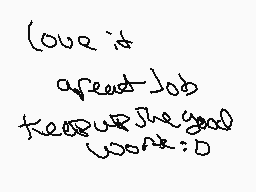 love it
great Job
Keep up the good
work :D